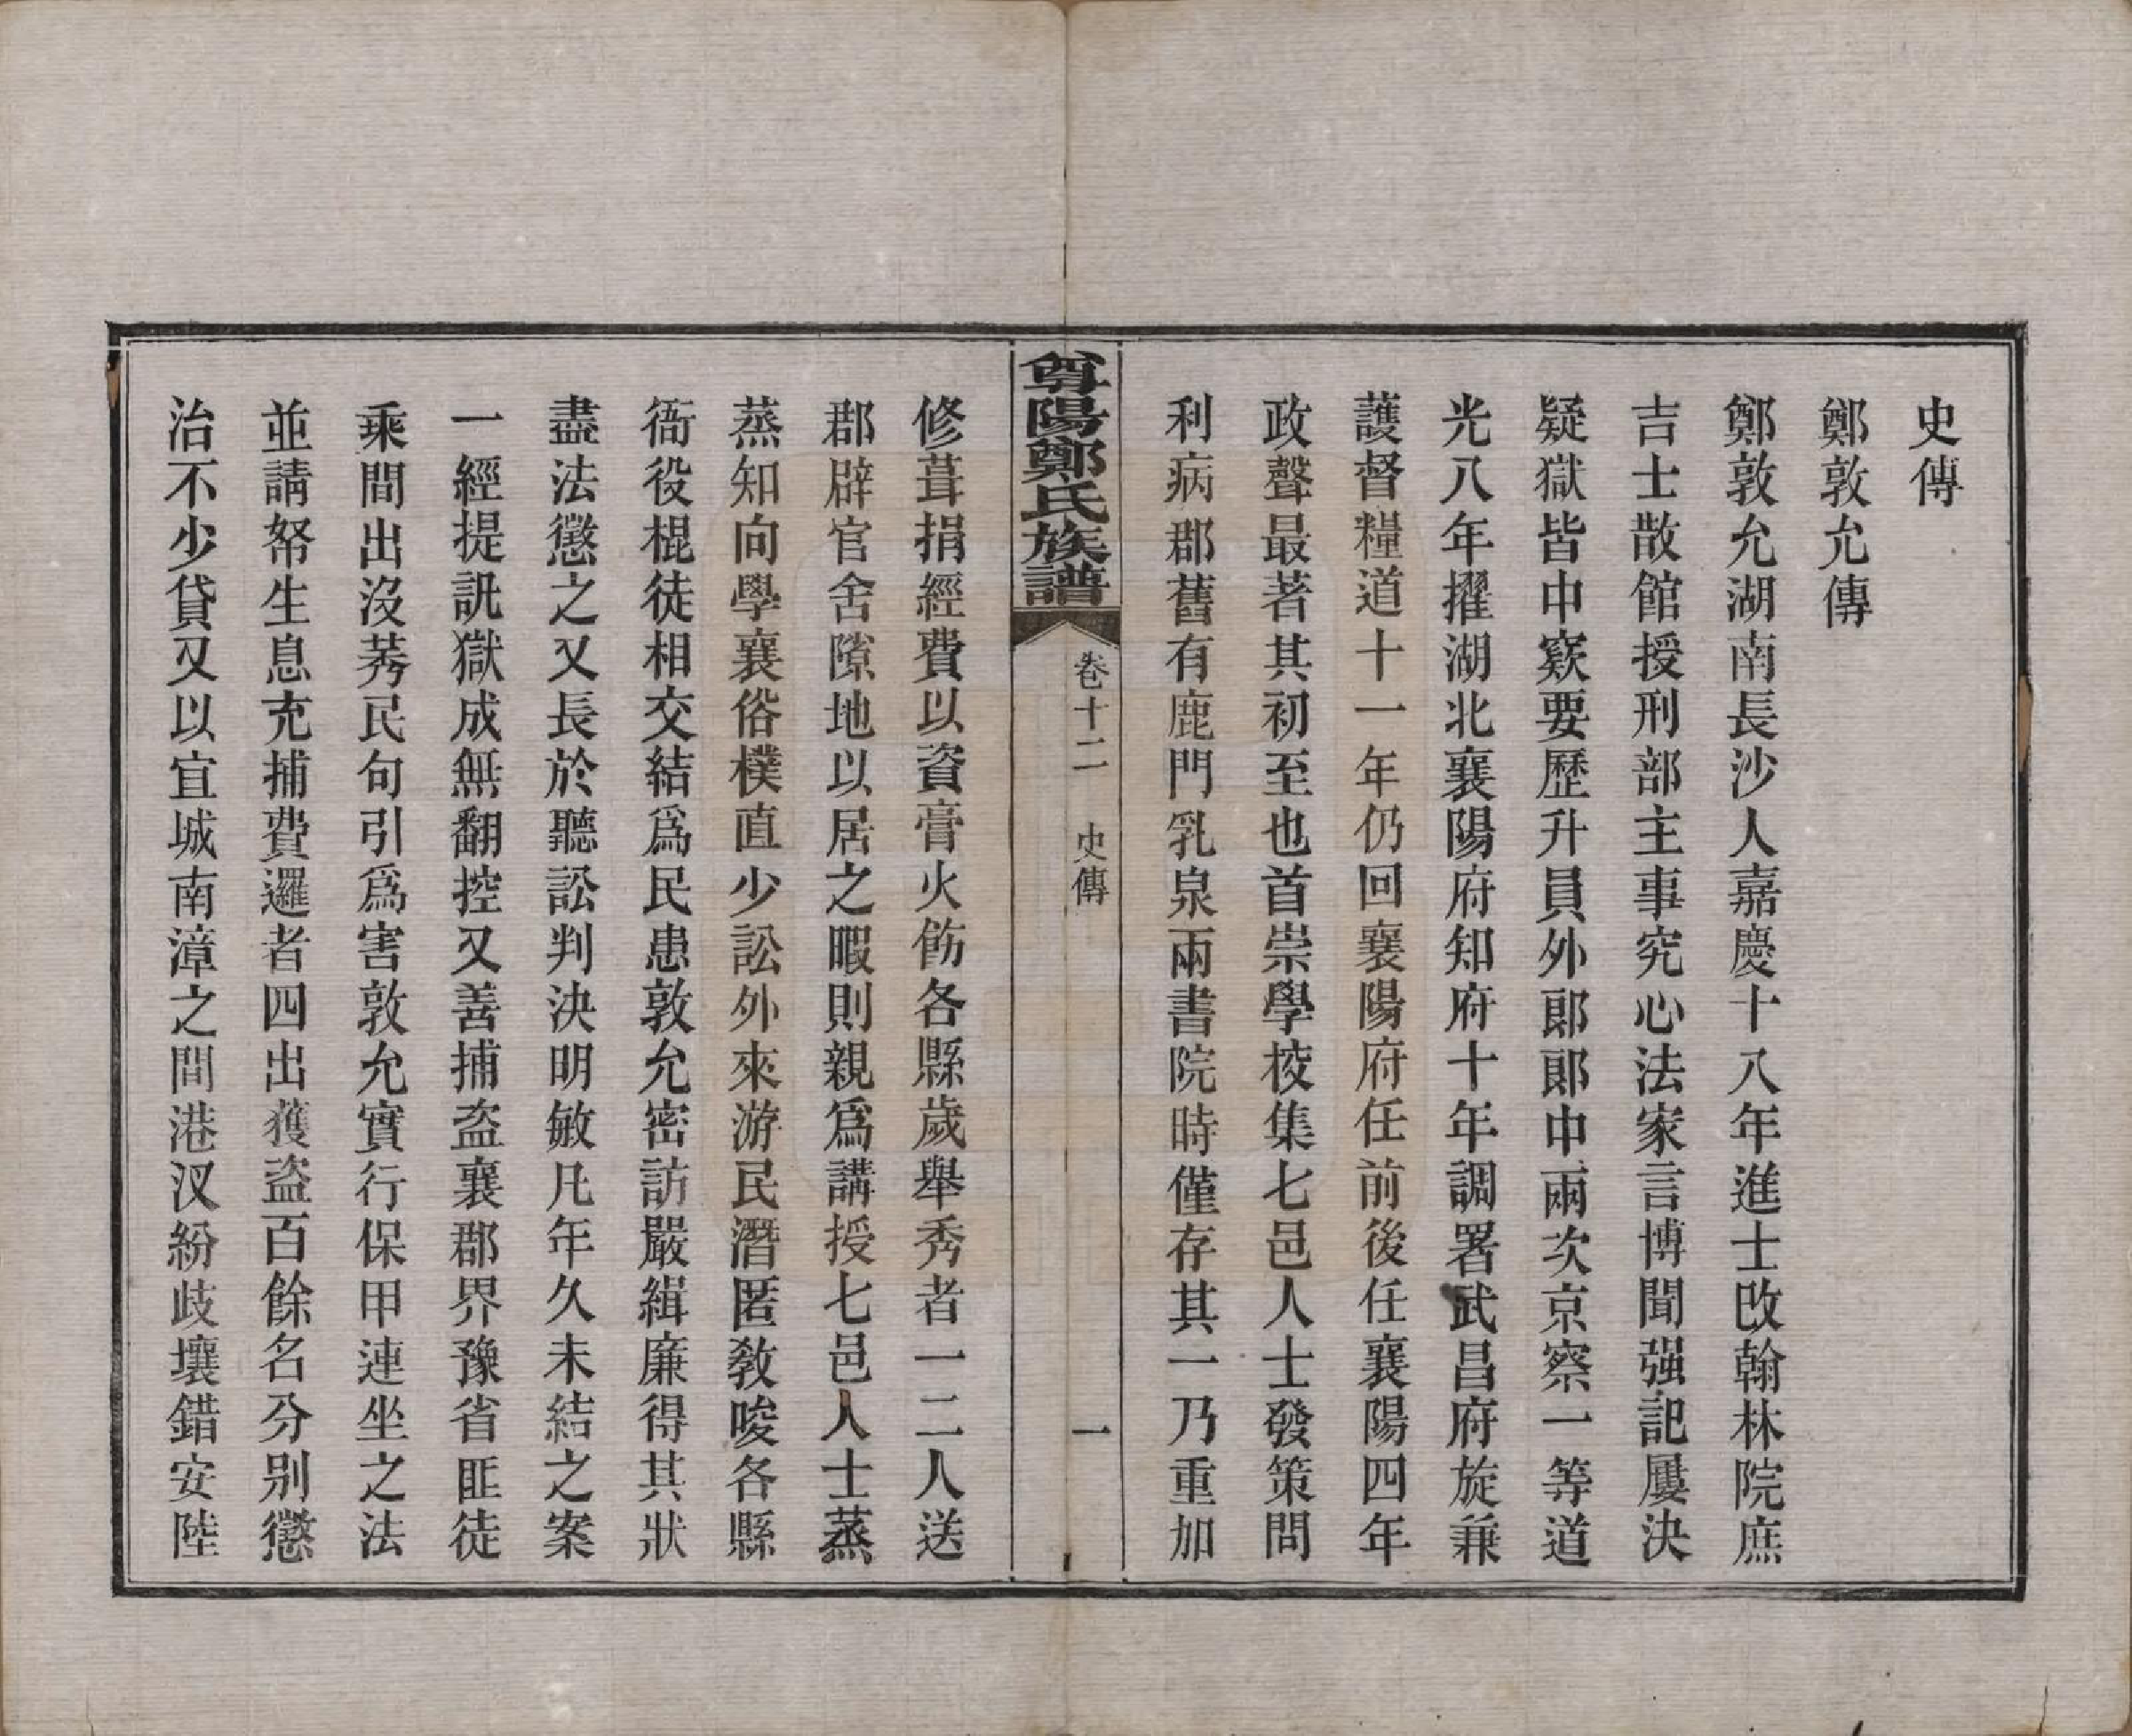 史傳
鄭敦允傳
鄭敦允湖南長沙人嘉慶十八年進士改翰林院庶
吉士散館授刑部主事究心法家言博聞强記屢決
疑獄皆中窾要歷升員外郞郞中兩次京察一等道
光八年擢湖北襄陽府知府十年調署武昌府旋兼
護督糧道十一年仍回襄陽府任前後任襄陽四年
政聲最著其初至也首崇學校集七邑人士發策問
利病郡舊有鹿門乳泉兩書院時僅存其一乃重加
尊陽鄭氏族譜 卷十二 史傳 一
修葺捐經費以資膏火飭各縣歲舉秀者一二人送
郡辟官舍隙地以居之暇則親爲講授七邑人士蒸
蒸知向學襄俗樸直少訟外來游民潛匿敎唆各縣
衙役棍徒相交結爲民患敦允密訪嚴緝廉得其狀
盡法懲之又長於聽訟判決明敏凡年久未結之案
一經提訊獄成無翻控又善捕盗襄郡界豫省匪徒
乘間出沒莠民句引爲害敦允實行保甲連坐之法
並請帑生息充捕費邏者四出獲盜百餘名分别懲
治不少貸又以宜城南漳之間港汊紛歧壤錯安陸